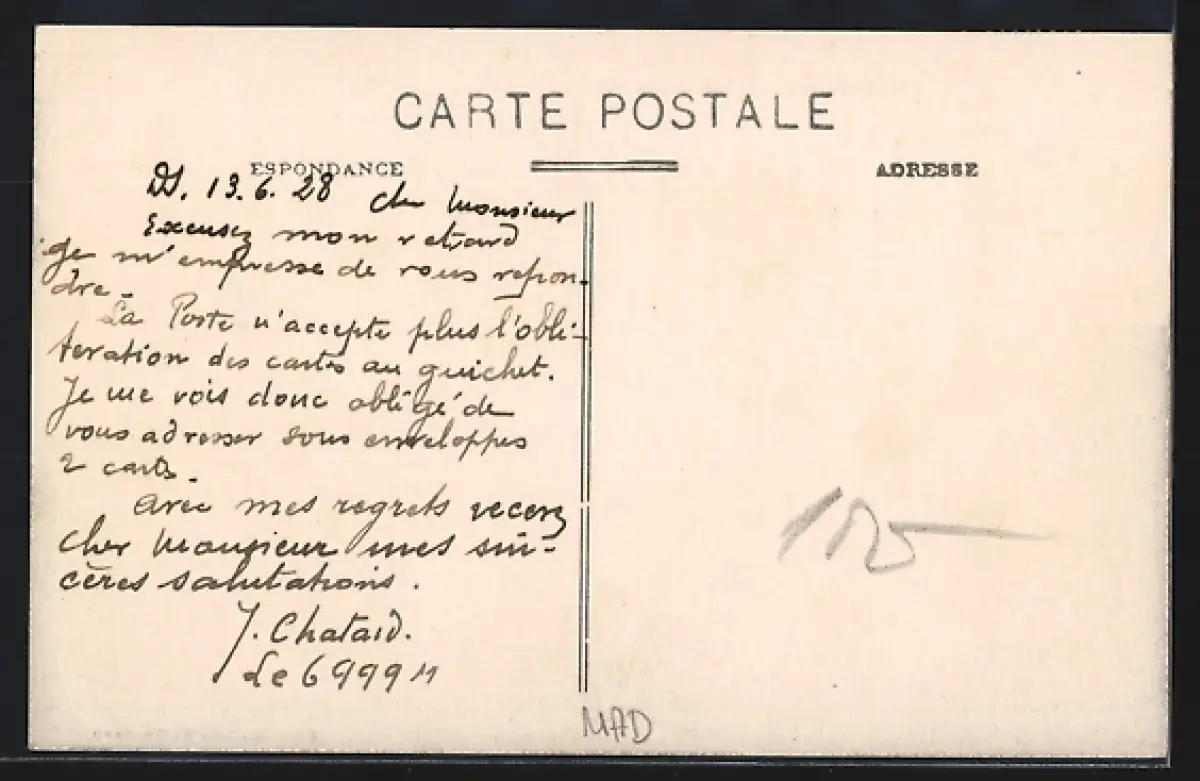 CARTE POSTALE
ESPONDANCE
ADRESSE
DS. 13.6.28 Cher Monsieur
Excusez mon retard
Je m'empresse de vous repon-
dre.
La Poste n'accepte plus l'obli-
teration des cartes au guichet.
Je me vois donc obligé de
vous adresser sous enveloppes
2 cartes.
Avec mes regrets recevez
Cher Monsieur mes sin-
cères salutations.
J. Chataid.
Le 6999
MAD